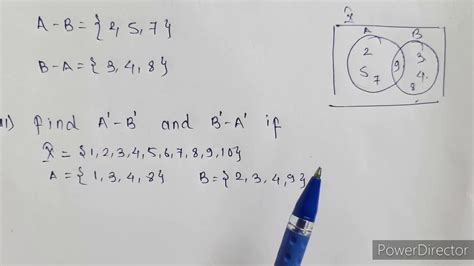 A-B = {2,5,7}
B-A = {3,4,8}
X
A B
2
5 7
9
3
4
8
11) find A'-B' and B'-A' if
X = {1,2,3,4,5,6,7,8,9,10}
A = {1,3,4,8} B = {2,3,4,9}
PowerDirector